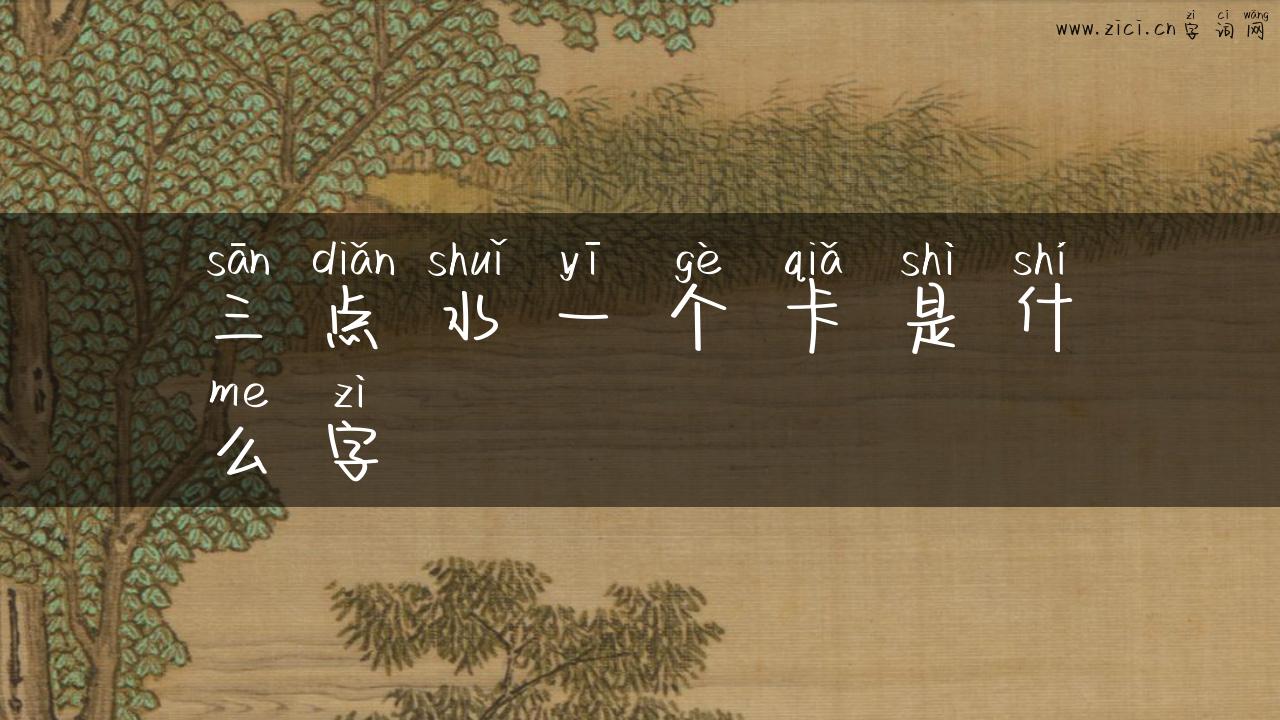 zì cí wǎng
www.zici.cn 字词网
sān diǎn shuǐ yī gè qiǎ shì shí
三点水一个卡是什
me zì
么字